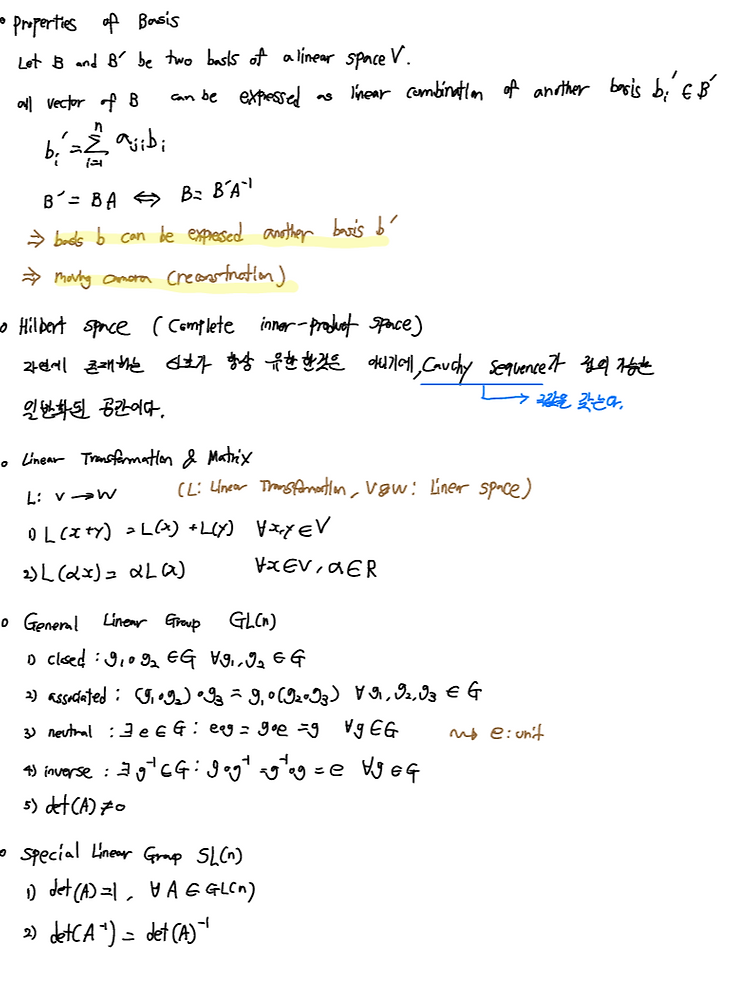 • Properties of Basis
Let B and B′ be two basis of a linear space V.
all vector of B can be expressed as linear combination of another basis bᵢ′ ∈ B′
bᵢ′ = Σⁿᵢ₌₁ aⱼᵢbᵢ
B′ = BA ⇔ B = B′A⁻¹
⇒ basis b can be expressed another basis b′
⇒ moving camera (reconstruction)
• Hilbert space (Complete inner-product space)
자연에 존재하는 신호가 항상 유한한것은 아니기에, Cauchy sequence가 정의 가능한
→ 극한을 갖는다.
일반화된 공간이다.
• Linear Transformation & Matrix
L: V → W (L: Linear Transformation, V&W: Linear space)
1) L(x+y) = L(x) + L(y) ∀x,y ∈ V
2) L(αx) = αL(x) ∀x ∈ V, α ∈ R
• General Linear Group GL(n)
1) closed : g₁∘g₂ ∈ G ∀g₁, g₂ ∈ G
2) associated : (g₁∘g₂)∘g₃ = g₁∘(g₂∘g₃) ∀g₁, g₂, g₃ ∈ G
3) neutral : ∃e ∈ G : e∘g = g∘e = g ∀g ∈ G ⇝ e: unit
4) inverse : ∃g⁻¹ ∈ G : g∘g⁻¹ = g⁻¹∘g = e ∀g ∈ G
5) det(A) ≠ 0
• Special Linear Group SL(n)
1) det(A) = 1, ∀A ∈ GL(n)
2) det(A⁻¹) = det(A)⁻¹